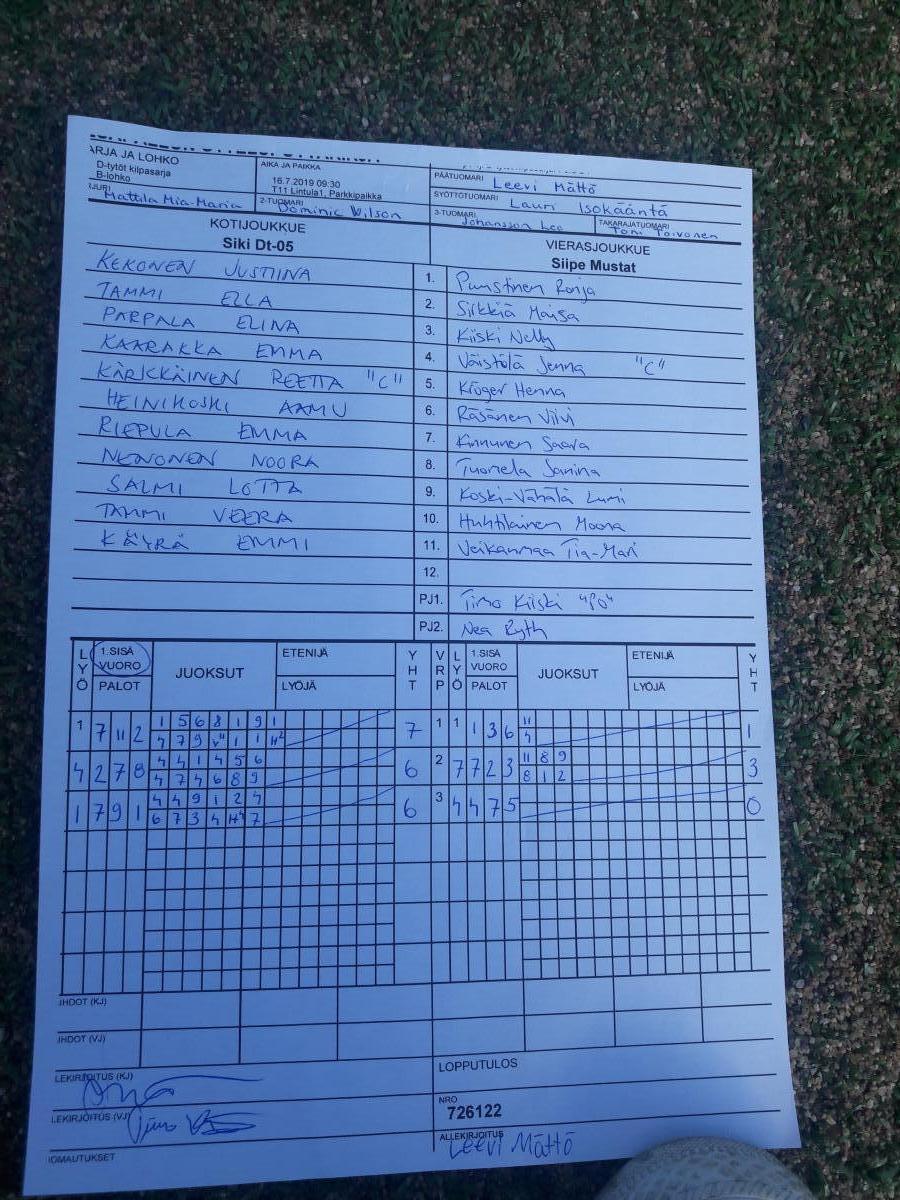 ARJA JA LOHKO
D-tytöt kilpasarja
B-lohko
AIKA JA PAIKKA
16.7.2019 09:30
T11 Lintula1, Parkkipaikka
PÄÄTUOMARI Leevi Mättö
SYÖTTÖTUOMARI Lauri Isokääntä
Mattila Mia-Maria
2-TUOMARI Dominic Wilson
3-TUOMARI Johansson Leo
TAKARAJATUOMARI Toni Toivonen
KOTIJOUKKUE
Siki Dt-05
VIERASJOUKKUE
Siipe Mustat
KEKONEN JUSTIINA 1. Puustinen Ronja
TAMMI ELLA 2. Siikkiä Maisa
PARPALA ELINA 3. Kiiski Nelly
KAARAKKA EMMA 4. Väistölä Jenna "C"
KÄRKKÄINEN REETTA "C" 5. Kröger Henna
HEINIKOSKI AAMU 6. Räsänen Viivi
RIEPULA EMMA 7. Kinnunen Saara
NENONEN NOORA 8. Tuomela Janina
SALMI LOTTA 9. Koski-Vähälä Lumi
TAMMI VEERA 10. Huhtilainen Moona
KÄYRÄ EMMI 11. Veikanmaa Tia-Mari
12.
PJ1. Timo Kiiski "PO"
PJ2. Nea Ryth
LYÖ 1.SISÄ VUORO PALOT JUOKSUT ETENIJÄ LYÖJÄ YHT VRP LYÖ 1.SISÄ VUORO PALOT JUOKSUT ETENIJÄ LYÖJÄ YHT
1 7 11 2 1 5 6 8 1 9 1 7 1 1 1 3 6 11 1
4 7 9 1 1 4
4 2 7 8 4 4 1 4 5 6 6 2 7 7 2 3 11 8 9 3
4 7 4 6 8 9 8 1 2
1 7 9 1 4 4 9 1 2 4 6 3 4 4 7 5 0
6 7 3 4 7
IHDOT (KJ)
IHDOT (VJ)
LEKIRJOITUS (KJ)
LEKIRJOITUS (VJ) Timo
LOPPUTULOS
NRO
726122
ALLEKIRJOITUS
Leevi Mättö
IOMAUTUKSET